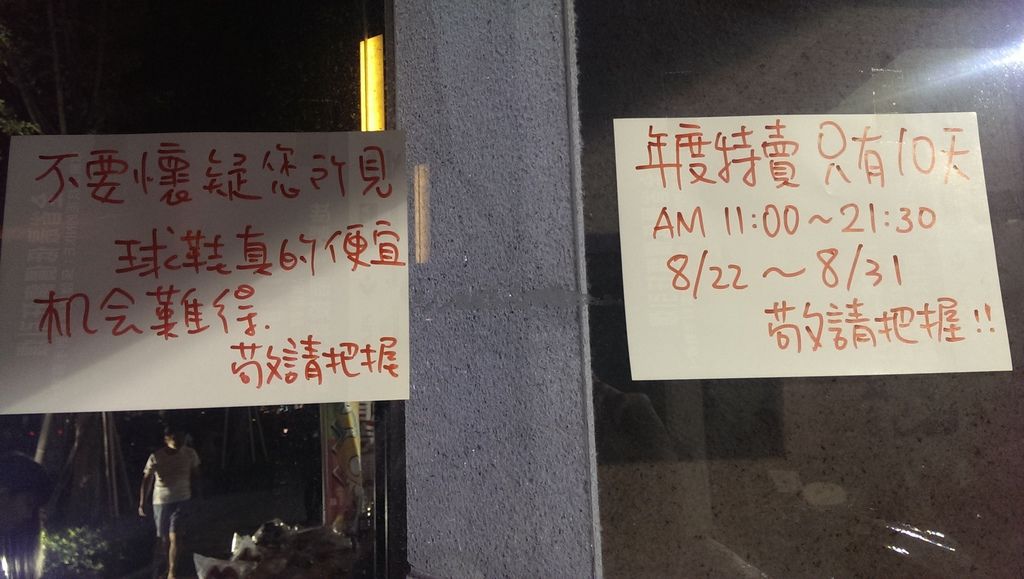 不要懷疑您所見
球鞋真的便宜
机会難得.
敬請把握
年度特賣 只有10天
AM 11:00~21:30
8/22~8/31
敬請把握!!